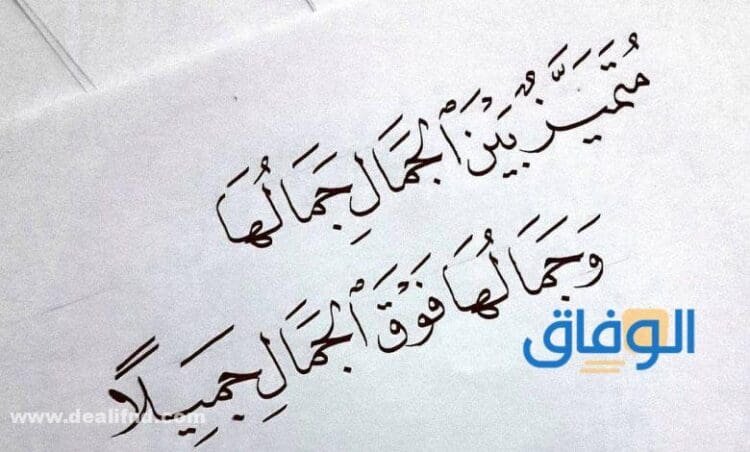 مُتَمَيَّزٌ بَيْنَ ٱلْجَمَالِ جَمَالُهَا
وَجَمَالُهَا فَوْقَ ٱلْجَمَالِ جَمِيلًا
الوفاق
www.dealifnd.com